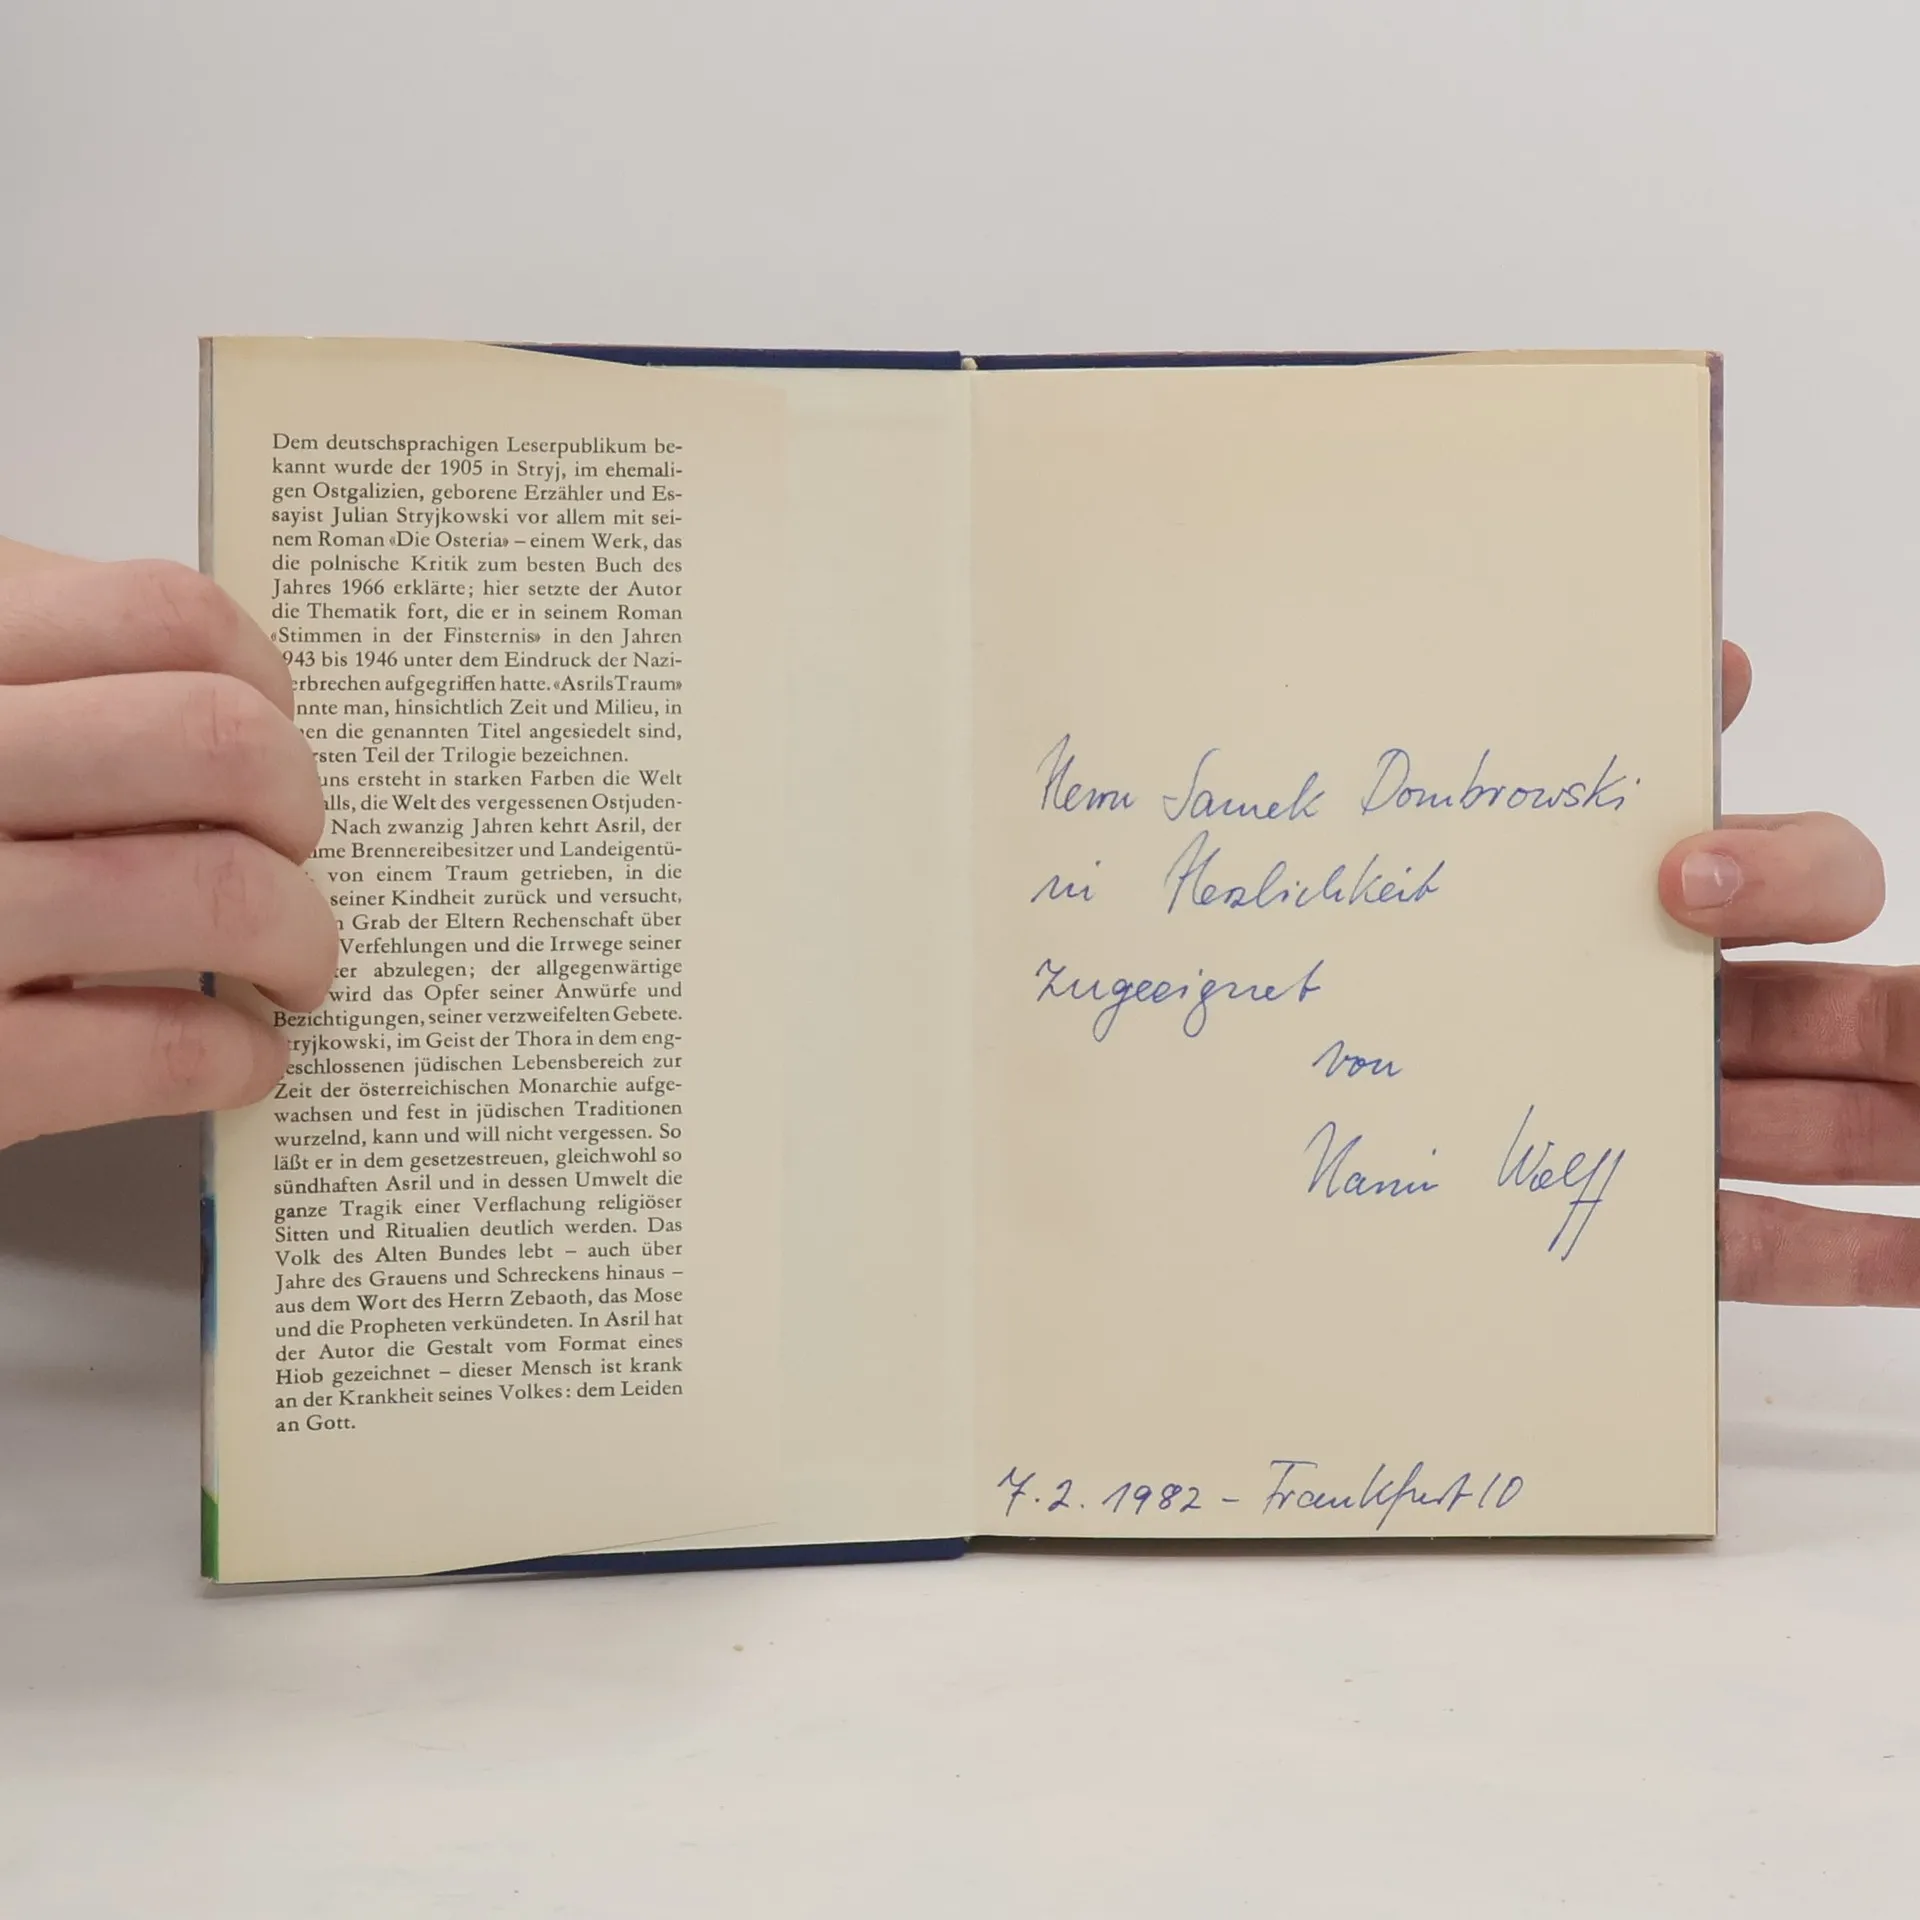 Dem deutschsprachigen Leserpublikum be-
kannt wurde der 1905 in Stryj, im ehemali-
gen Ostgalizien, geborene Erzähler und Es-
sayist Julian Stryjkowski vor allem mit sei-
nem Roman «Die Osteria» – einem Werk, das
die polnische Kritik zum besten Buch des
Jahres 1966 erklärte; hier setzte der Autor
die Thematik fort, die er in seinem Roman
«Stimmen in der Finsternis» in den Jahren
943 bis 1946 unter dem Eindruck der Nazi-
erbrechen aufgegriffen hatte. «Asrils Traum»
nnte man, hinsichtlich Zeit und Milieu, in
en die genannten Titel angesiedelt sind,
rsten Teil der Trilogie bezeichnen.
uns ersteht in starken Farben die Welt
alls, die Welt des vergessenen Ostjuden-
Nach zwanzig Jahren kehrt Asril, der
me Brennereibesitzer und Landeigentü-
von einem Traum getrieben, in die
seiner Kindheit zurück und versucht,
Grab der Eltern Rechenschaft über
Verfehlungen und die Irrwege seiner
er abzulegen; der allgegenwärtige
wird das Opfer seiner Anwürfe und
Bezichtigungen, seiner verzweifelten Gebete.
tryjkowski, im Geist der Thora in dem eng-
eschlossenen jüdischen Lebensbereich zur
Zeit der österreichischen Monarchie aufge-
wachsen und fest in jüdischen Traditionen
wurzelnd, kann und will nicht vergessen. So
läßt er in dem gesetzestreuen, gleichwohl so
sündhaften Asril und in dessen Umwelt die
ganze Tragik einer Verflachung religiöser
Sitten und Ritualien deutlich werden. Das
Volk des Alten Bundes lebt – auch über
Jahre des Grauens und Schreckens hinaus –
aus dem Wort des Herrn Zebaoth, das Mose
und die Propheten verkündeten. In Asril hat
der Autor die Gestalt vom Format eines
Hiob gezeichnet – dieser Mensch ist krank
an der Krankheit seines Volkes: dem Leiden
an Gott.
Herrn Samek Dombrowski
in Herzlichkeit
zugeeignet
von
Wolff
7.2.1982 – Frankfurt/O